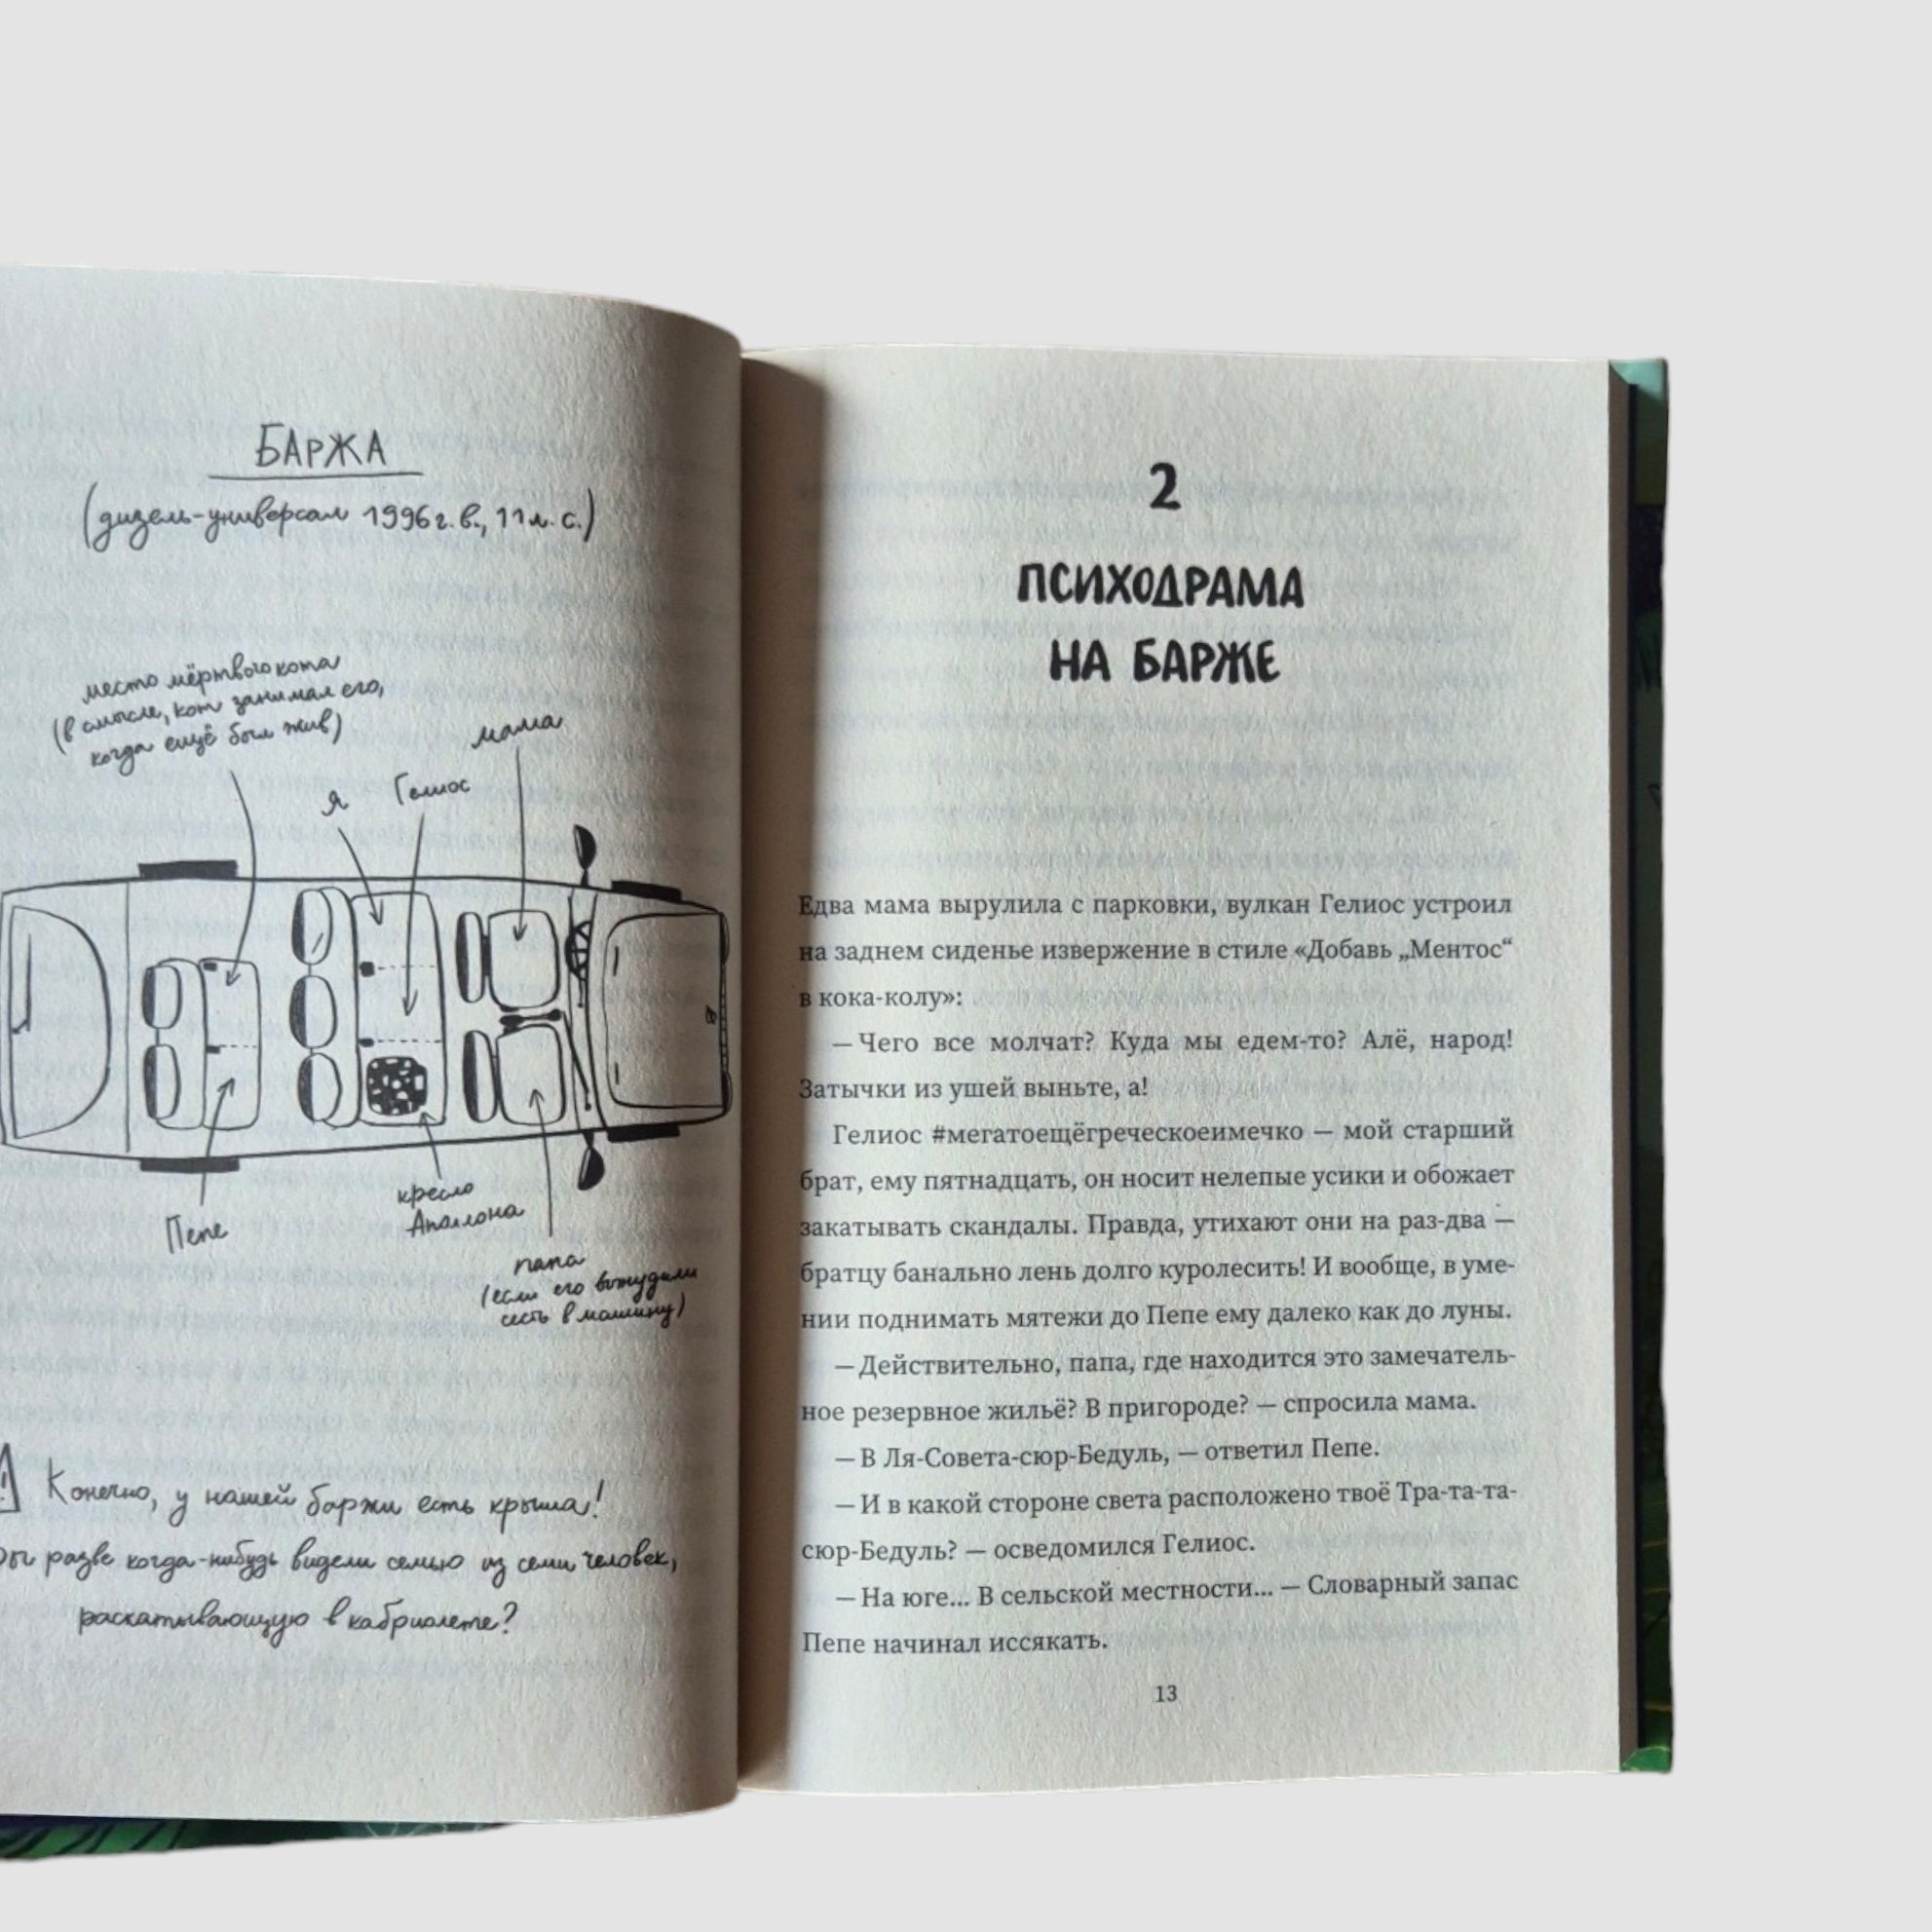 БАРЖА
(дизель-универсал 1996 г. в., 11 л. с.)
место мёртвого кота
(в смысле, кот занимал его,
когда ещё был жив)
мама
я
Гелиос
Пепе
кресло
Аполлона
папа
(если его вынудили
сесть в машину)
Конечно, у нашей баржи есть крыша!
разве когда-нибудь видели семью из семи человек,
раскатывающую в кабриолете?
2
ПСИХОДРАМА
НА БАРЖЕ
Едва мама вырулила с парковки, вулкан Гелиос устроил
на заднем сиденье извержение в стиле «Добавь „Ментос“
в кока-колу»:
— Чего все молчат? Куда мы едем-то? Алё, народ!
Затычки из ушей выньте, а!
Гелиос #мегатоещёгреческоеимечко — мой старший
брат, ему пятнадцать, он носит нелепые усики и обожает
закатывать скандалы. Правда, утихают они на раз-два —
братцу банально лень долго куролесить! И вообще, в уме-
нии поднимать мятежи до Пепе ему далеко как до луны.
— Действительно, папа, где находится это замечатель-
ное резервное жильё? В пригороде? — спросила мама.
— В Ля-Совета-сюр-Бедуль, — ответил Пепе.
— И в какой стороне света расположено твоё Тра-та-та-
сюр-Бедуль? — осведомился Гелиос.
— На юге... В сельской местности... — Словарный запас
Пепе начинал иссякать.
13